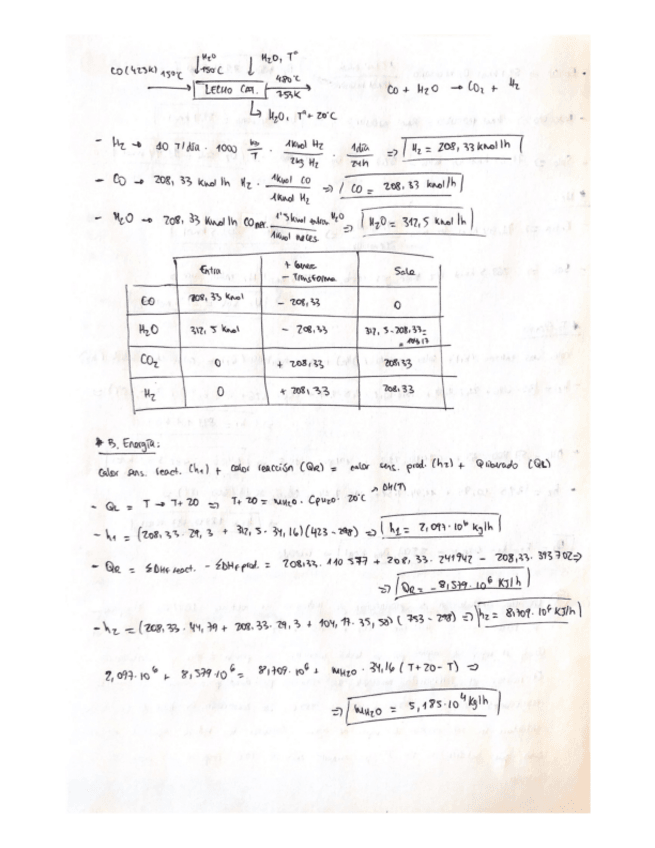 H₂O 150°C
H₂O, T°
CO (423K) 150°C
LECHO CAT.
480°C
753K
CO + H₂O → CO₂ + H₂
H₂O, T°+20°C
- H₂ → 10 T/día · 1000 kg/T · 1kmol H₂/2kg H₂ · 1día/24h => H₂ = 208,33 kmol/h
- CO → 208,33 kmol/h H₂ · 1kmol CO/1kmol H₂ => CO = 208,33 kmol/h
- H₂O → 208,33 kmol/h CO 1'5 kmol H₂O/1kmol neces. => H₂O = 312,5 kmol/h
Entra + Genera - Transforma Sale
CO 208,33 kmol - 208,33 0
H₂O 312,5 kmol - 208,33 312,5-208,33= = 104,17
CO₂ 0 + 208,33 208,33
H₂ 0 + 208,33 208,33
* B. Energía:
Calor sens. react. (h₁) + calor reacción (QR) = calor sens. prod. (h₂) + Q liberado (QL)
- QL = T → T+20 => T+20 = mH₂O · CpH₂O · 20°C ΔH(T)
- h₁ = (208,33 · 29,3 + 312,5 · 34,16)(423-298) => h₁ = 2,097·10⁶ kJ/h
- QR = ΣΔHf react. - ΣΔHf prod. = 208,33 · 110 577 + 208,33 · 241942 - 208,33 · 393702 =>
=> QR = -8,579·10⁶ KJ/h
- h₂ = (208,33 · 44,79 + 208,33 · 29,3 + 104,17 · 35,50)(753-298) => h₂ = 8,709·10⁶ KJ/h
2,097·10⁶ + 8,579·10⁶ = 8,709·10⁶ + mH₂O · 34,16 (T+20-T) =>
=> mH₂O = 5,185·10⁴ kg/h